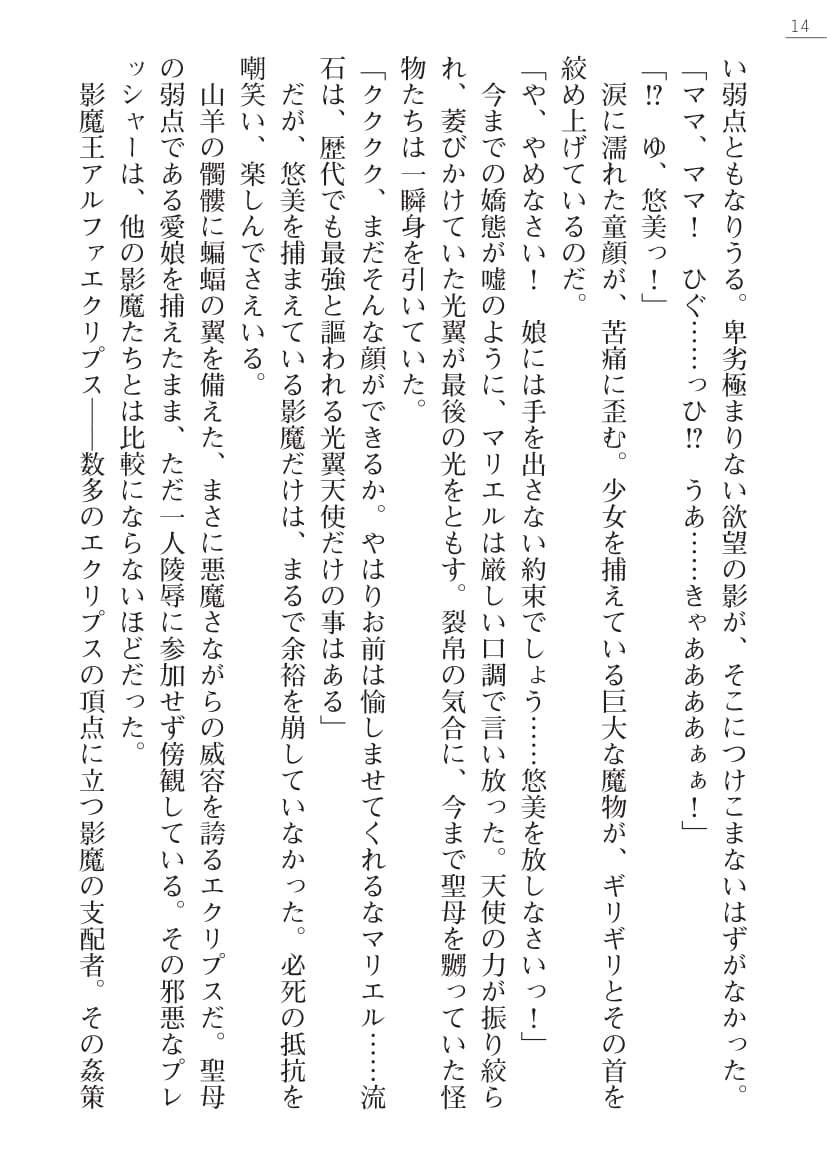 14
い弱点ともなりうる。卑劣極まりない欲望の影が、そこにつけこまないはずがなかった。
「ママ、ママ！　ひぐ……っひ⁉　うあ……きゃああああぁぁ！」
「⁉　ゆ、悠美っ！」
　涙に濡れた童顔が、苦痛に歪む。少女を捕えている巨大な魔物が、ギリギリとその首を
絞め上げているのだ。
「や、やめなさい！　娘には手を出さない約束でしょう……悠美を放しなさいっ！」
　今までの嬌態が嘘のように、マリエルは厳しい口調で言い放った。天使の力が振り絞ら
れ、萎びかけていた光翼が最後の光をともす。裂帛の気合に、今まで聖母を嬲っていた怪
物たちは一瞬身を引いていた。
「クククク、まだそんな顔ができるか。やはりお前は愉しませてくれるなマリエル……流
石は、歴代でも最強と謳われる光翼天使だけの事はある」
　だが、悠美を捕まえている影魔だけは、まるで余裕を崩していなかった。必死の抵抗を
嘲笑い、楽しんでさえいる。
　山羊の髑髏に蝙蝠の翼を備えた、まさに悪魔さながらの威容を誇るエクリプスだ。聖母
の弱点である愛娘を捕えたまま、ただ一人陵辱に参加せず傍観している。その邪悪なプレ
ッシャーは、他の影魔たちとは比較にならないほどだった。
　影魔王アルファエクリプス――数多のエクリプスの頂点に立つ影魔の支配者。その姦策